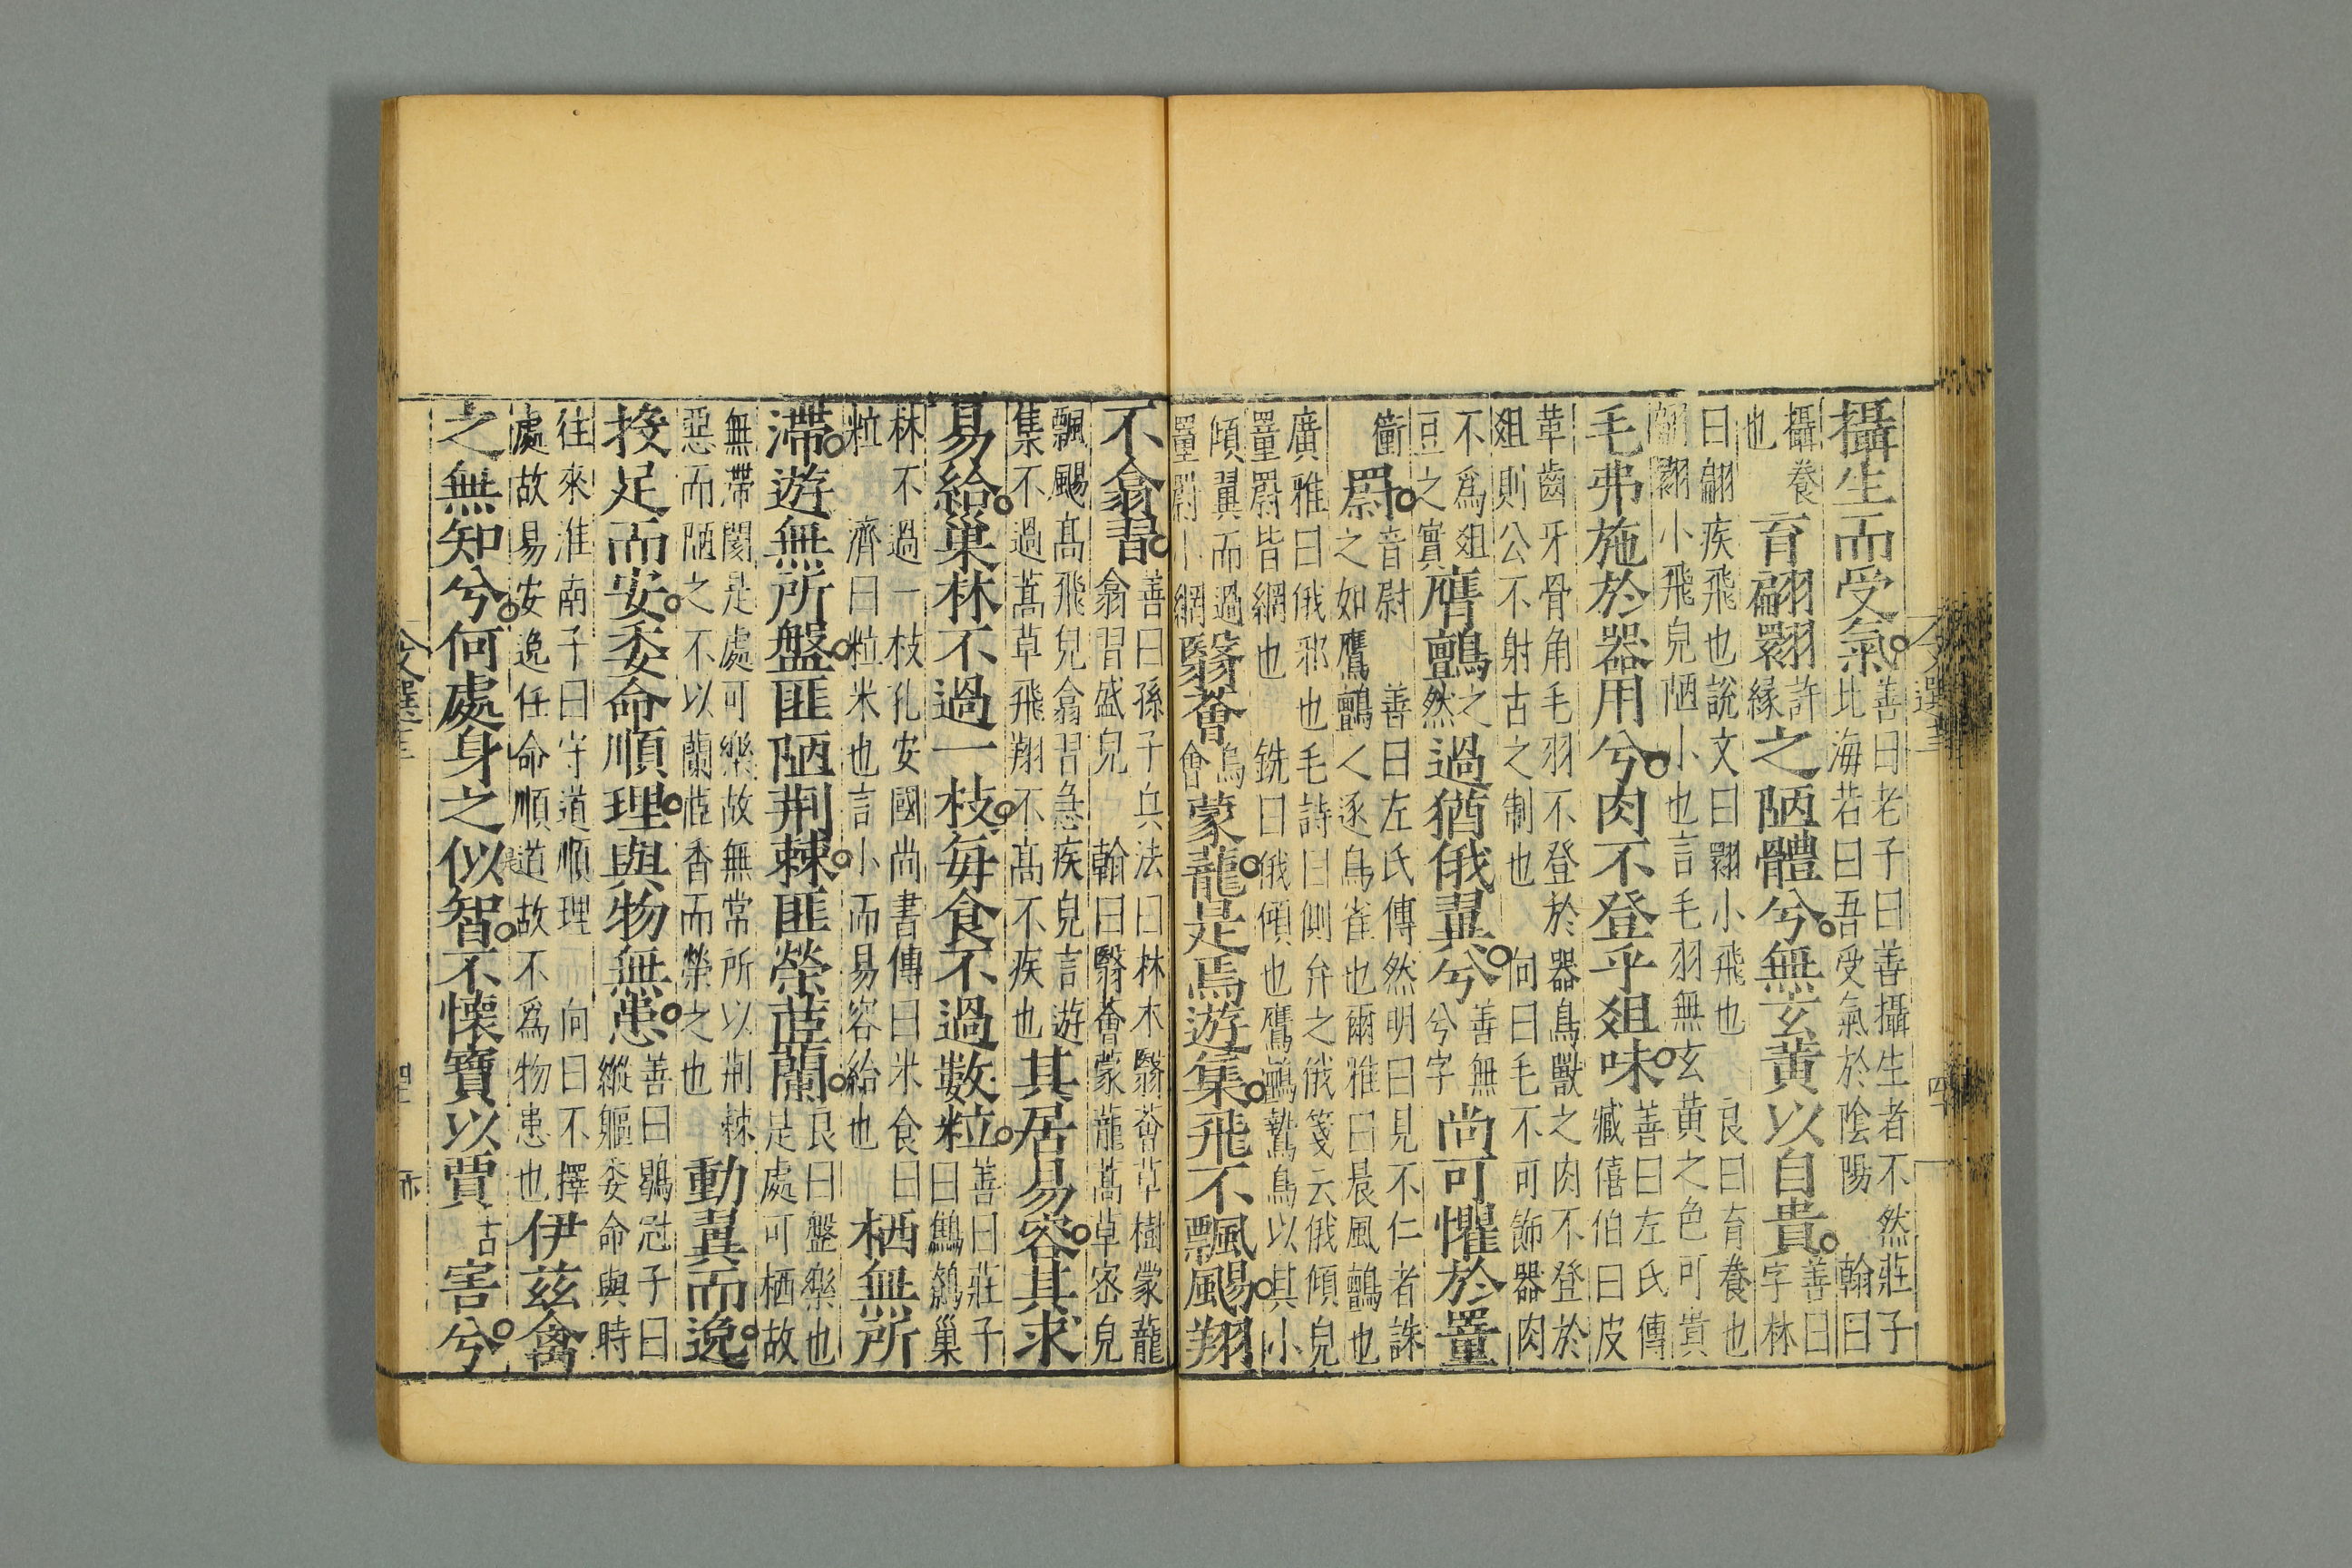 攝生而受氣善曰老子曰善攝生者不然莊子北海若曰吾受氣於陰陽翰曰
攝養也育翩翾許緣之陋體兮無玄黄以自貴善曰字林
曰翩疾飛也說文曰翾小飛也良曰育養也翩翾小飛皃陋小也言毛羽無玄黄之色可貴
毛弗施於器用兮肉不登乎爼味善曰左氏傳臧僖伯曰皮
革齒牙骨角毛羽不登於器鳥獸之肉不登於爼則公不射古之制也向曰毛不可飾器肉
不爲爼豆之實鷹鸇之然過猶俄翼兮善無兮字尚可懼於罿
衝罻音尉善曰左氏傳然明曰見不仁者誅之如鷹鸇之逐鳥雀也爾雅曰晨風鸇也
廣雅曰俄邪也毛詩曰側弁之俄箋云俄傾皃罿罻皆網也銑曰俄傾也鷹鸇鷙鳥以其小
傾翼而過罿罻小網翳薈烏會蒙蘢是焉遊集飛不飄颺翔
不翕習善曰孫子兵法曰林木翳薈草樹蒙蘢翕習盛皃翰曰翳薈蒙蘢蒿草宻皃
飄颺高飛皃翕習急疾皃言遊集不過蒿草飛翔不高不疾也其居易容其求
易給巢林不過一枝毎食不過數粒善曰莊子曰鷦鷯巢
林不過一枝孔安國尚書傳曰米食曰粒濟曰粒米也言小而易容給也栖無所
滯遊無所盤匪陋荆棘匪榮茝蘭良曰盤樂也足處可栖故
無滯閡是處可樂故無常所以荆棘惡而陋之不以蘭茝香而榮之也動翼而逸
投足而安委命順理與物無患善曰鶡冠子曰縱軀委命與時
往來淮南子曰守道順理向曰不擇處故易安逸任命順道故不爲物患也伊兹禽
之無知兮何處身之似智不懷寶以賈古害兮
文選十三
四
文選十三
四
亦